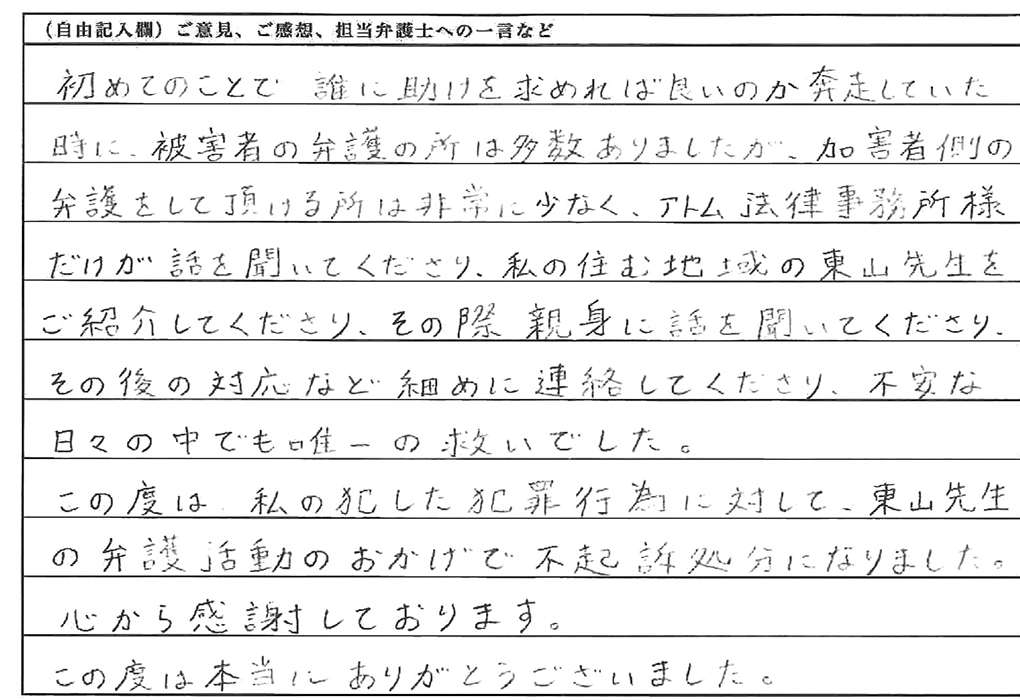 （自由記入欄）ご意見、ご感想、担当弁護士への一言など
初めてのことで 誰に助けを求めれば良いのか奔走していた
時に、被害者の弁護の所は多数ありましたが、加害者側の
弁護をして頂ける所は非常に少なく、アトム法律事務所様
だけが話を聞いてくださり、私の住む地域の東山先生を
ご紹介してくださり、その際親身に話を聞いてくださり、
その後の対応など細めに連絡してくださり、不安な
日々の中でも唯一の救いでした。
この度は、私の犯した犯罪行為に対して、東山先生
の弁護活動のおかげで不起訴処分になりました。
心から感謝しております。
この度は本当にありがとうございました。